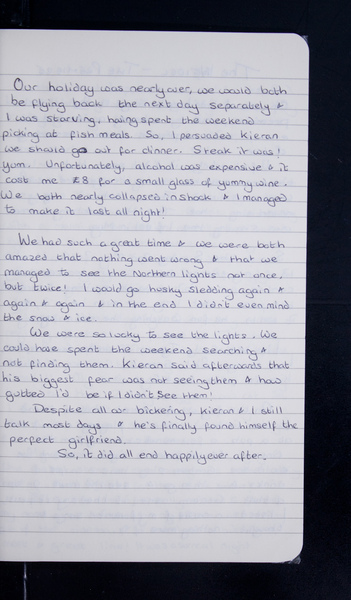 Our holiday was nearly over, we would both
be flying back the next day separately &
I was starving, having spent the weekend
picking at fish meals. So, I persuaded Kieran
we should go out for dinner. Steak it was!
Yum. Unfortunately, alcohol was expensive & it
cost me £8 for a small glass of yummy wine.
We both nearly collapsed in shock & I managed
to make it last all night!
We had such a great time & we were both
amazed that nothing went wrong & that we
managed to see the Northern lights not once,
but twice! I would go husky sledding again &
again & again & in the end I didn't even mind
the snow & ice.
We were so lucky to see the lights. We
could have spent the weekend searching &
not finding them. Kieran said afterwards that
his biggest fear was not seeing them & how
gutted I'd be if I didn't see them!
Despite all our bickering, Kieran & I still
talk most days & he's finally found himself the
perfect girlfriend.
So, it did all end happily ever after.